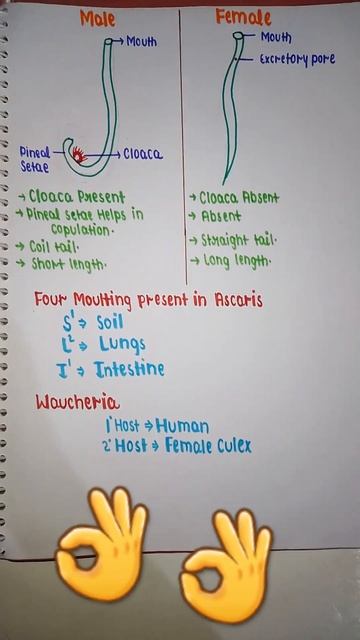 Male
Female
Mouth
Mouth
Excretory pore
Pineal Setae
Cloaca
→ Cloaca Present
→ Pineal setae Helps in
copulation.
→ Coil tail.
→ Short length.
→ Cloaca Absent
→ Absent
→ Straight tail.
→ Long length.
Four Moulting present in Ascaris
S¹ ⇒ Soil
L² ⇒ Lungs
I¹ ⇒ Intestine
Waucheria
1° Host ⇒ Human
2° Host ⇒ Female Culex